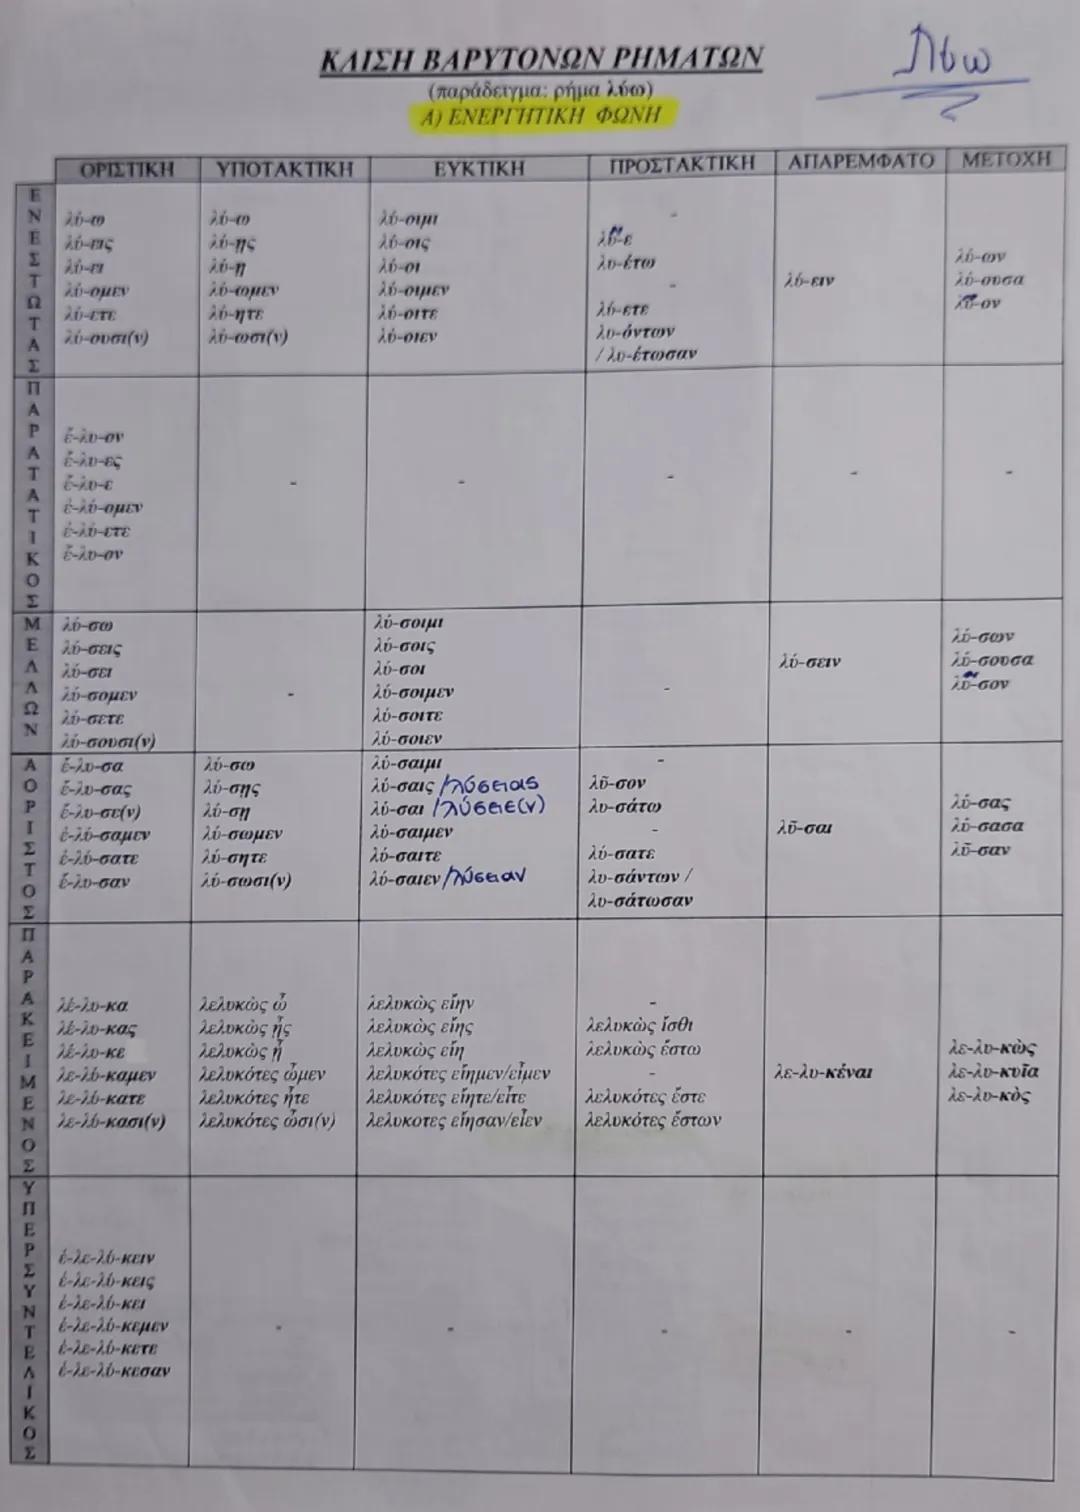 Λύω
ΚΛΙΣΗ ΒΑΡΥΤΟΝΩΝ ΡΗΜΑΤΩΝ
(παράδειγμα: ρήμα λύω)
Α) ΕΝΕΡΓΗΤΙΚΗ ΦΩΝΗ
ΟΡΙΣΤΙΚΗ ΥΠΟΤΑΚΤΙΚΗ ΕΥΚΤΙΚΗ ΠΡΟΣΤΑΚΤΙΚΗ ΑΠΑΡΕΜΦΑΤΟ ΜΕΤΟΧΗ
ΕΝΕΣΤΩΤΑΣ
λύ-ω
λύ-εις
λύ-ει
λύ-ομεν
λύ-ετε
λύ-ουσι(ν)
λύ-ω
λύ-ῃς
λύ-ῃ
λύ-ωμεν
λύ-ητε
λύ-ωσι(ν)
λύ-οιμι
λύ-οις
λύ-οι
λύ-οιμεν
λύ-οιτε
λύ-οιεν
-
λῦ-ε
λυ-έτω
-
λύ-ετε
λυ-όντων
/ λυ-έτωσαν
λύ-ειν
λύ-ων
λύ-ουσα
λῦ-ον
ΠΑΡΑΤΑΤΙΚΟΣ
ἔ-λυ-ον
ἔ-λυ-ες
ἔ-λυ-ε
ἐ-λύ-ομεν
ἐ-λύ-ετε
ἔ-λυ-ον
-
-
-
-
-
ΜΕΛΛΩΝ
λύ-σω
λύ-σεις
λύ-σει
λύ-σομεν
λύ-σετε
λύ-σουσι(ν)
-
λύ-σοιμι
λύ-σοις
λύ-σοι
λύ-σοιμεν
λύ-σοιτε
λύ-σοιεν
-
λύ-σειν
λύ-σων
λύ-σουσα
λῦ-σον
ΑΟΡΙΣΤΟΣ
ἔ-λυ-σα
ἔ-λυ-σας
ἔ-λυ-σε(ν)
ἐ-λύ-σαμεν
ἐ-λύ-σατε
ἔ-λυ-σαν
λύ-σω
λύ-σῃς
λύ-σῃ
λύ-σωμεν
λύ-σητε
λύ-σωσι(ν)
λύ-σαιμι
λύ-σαις /λύσειας
λύ-σαι /λύσειε(ν)
λύ-σαιμεν
λύ-σαιτε
λύ-σαιεν /λύσειαν
-
λῦ-σον
λυ-σάτω
-
λύ-σατε
λυ-σάντων /
λυ-σάτωσαν
λῦ-σαι
λύ-σας
λύ-σασα
λῦ-σαν
ΠΑΡΑΚΕΙΜΕΝΟΣ
λέ-λυ-κα
λέ-λυ-κας
λέ-λυ-κε
λε-λύ-καμεν
λε-λύ-κατε
λε-λύ-κασι(ν)
λελυκὼς ὦ
λελυκὼς ᾖς
λελυκὼς ᾖ
λελυκότες ὦμεν
λελυκότες ἦτε
λελυκότες ὦσι(ν)
λελυκὼς εἴην
λελυκὼς εἴης
λελυκὼς εἴη
λελυκότες εἴημεν/εἶμεν
λελυκότες εἴητε/εἶτε
λελυκοτες εἴησαν/εἶεν
-
λελυκὼς ἴσθι
λελυκὼς ἔστω
-
λελυκότες ἔστε
λελυκότες ἔστων
λε-λυ-κέναι
λε-λυ-κὼς
λε-λυ-κυῖα
λε-λυ-κὸς
ΥΠΕΡΣΥΝΤΕΛΙΚΟΣ
ἐ-λε-λύ-κειν
ἐ-λε-λύ-κεις
ἐ-λε-λύ-κει
ἐ-λε-λύ-κεμεν
ἐ-λε-λύ-κετε
ἐ-λε-λύ-κεσαν
-
-
-
-
-